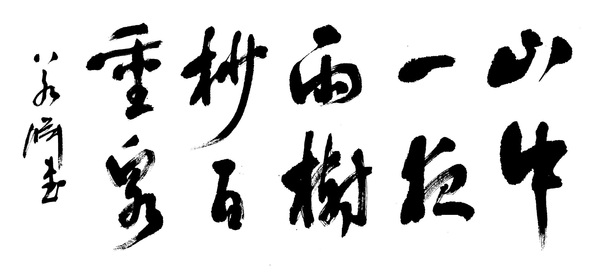 山中
一夜
雨樹
杪百
重泉